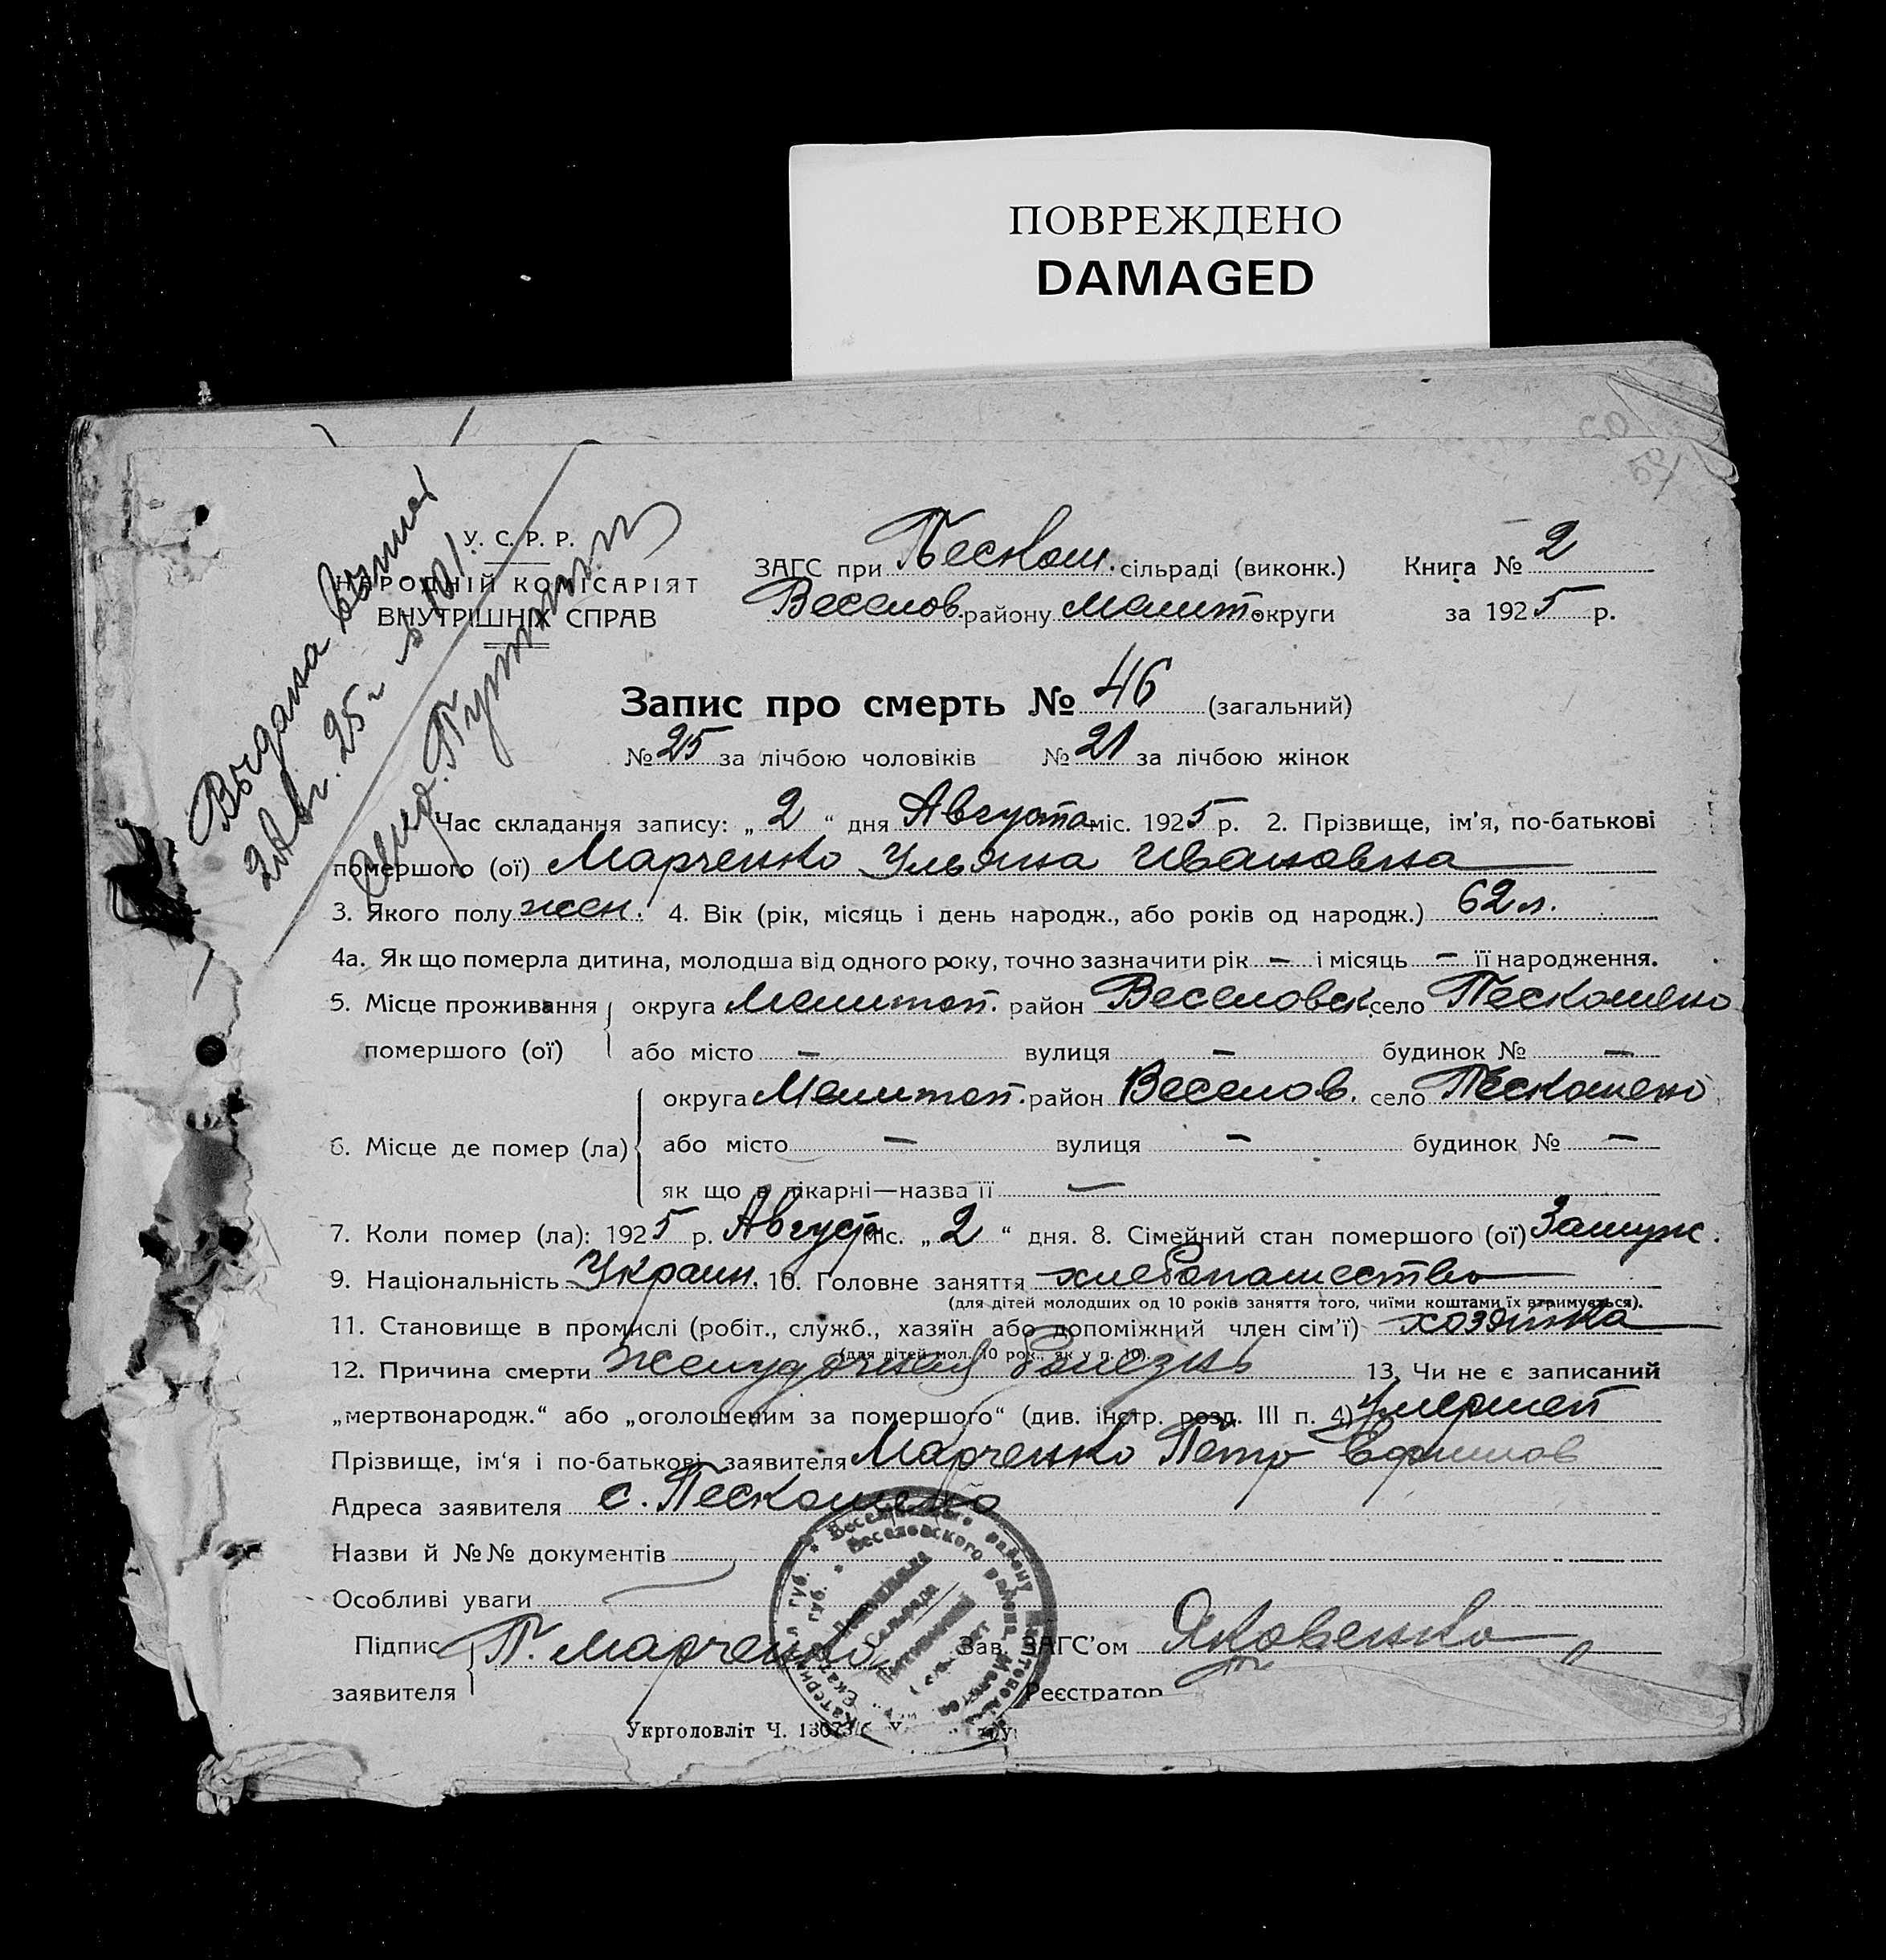 ПОВРЕЖДЕНО
DAMAGED
50
Выдана выпись
2 Авг. 25 г. № 101.
У. С. Р. Р.
НАРОДНІЙ КОМІСАРІЯТ
ВНУТРІШНІХ СПРАВ
ЗАГС при Пескош. сільраді (виконк.) Книга № 2
Веселов. району Мелит округи за 1925 р.
Запис про смерть № 46 (загальний)
№ 25 за лічбою чоловіків № 21 за лічбою жінок
Час складання запису: „ 2 “ дня Августа міс. 1925 р. 2. Прізвище, ім’я, по-батькові
помершого (ої) Марченко Ульяна Ивановна
3. Якого полу жен. 4. Вік (рік, місяць і день народж., або років од народж.) 62 л.
4а. Як що померла дитина, молодша від одного року, точно зазначити рік — і місяць — її народження.
5. Місце проживання округа Мелитоп. район Веселовск село Пескошено
помершого (ої) або місто — вулиця — будинок № —
округа Мелитоп. район Веселов. село Пескошено
6. Місце де помер (ла) або місто — вулиця — будинок № —
як що в лікарні—назва її —
7. Коли помер (ла): 1925 р. Августа міс. „ 2 “ дня. 8. Сімейний стан помершого (ої) Замуж.
9. Національність Украин. 10. Головне заняття хлебопашество
(для дітей молодших од 10 років заняття того, чиїми коштами їх втримується).
11. Становище в промислі (робіт., служб., хазяїн або допоміжний член сім’ї) хозяйка
(для дітей мол. 10 рок., як у п. 10).
12. Причина смерти желудочная болезнь 13. Чи не є записаний
„мертвонародж.“ або „оголошеним за помершого“ (див. інстр. розд. III п. 4) умершей
Прізвище, ім‘я і по-батькові заявителя Марченко Петр Ефимов
Адреса заявителя с. Пескошено
Назви й №№ документів
Особливі уваги
Підпис заявителя П. Марченко Зав. ЗАГС’ом Яковенко
Реєстратор
Укрголовліт Ч.